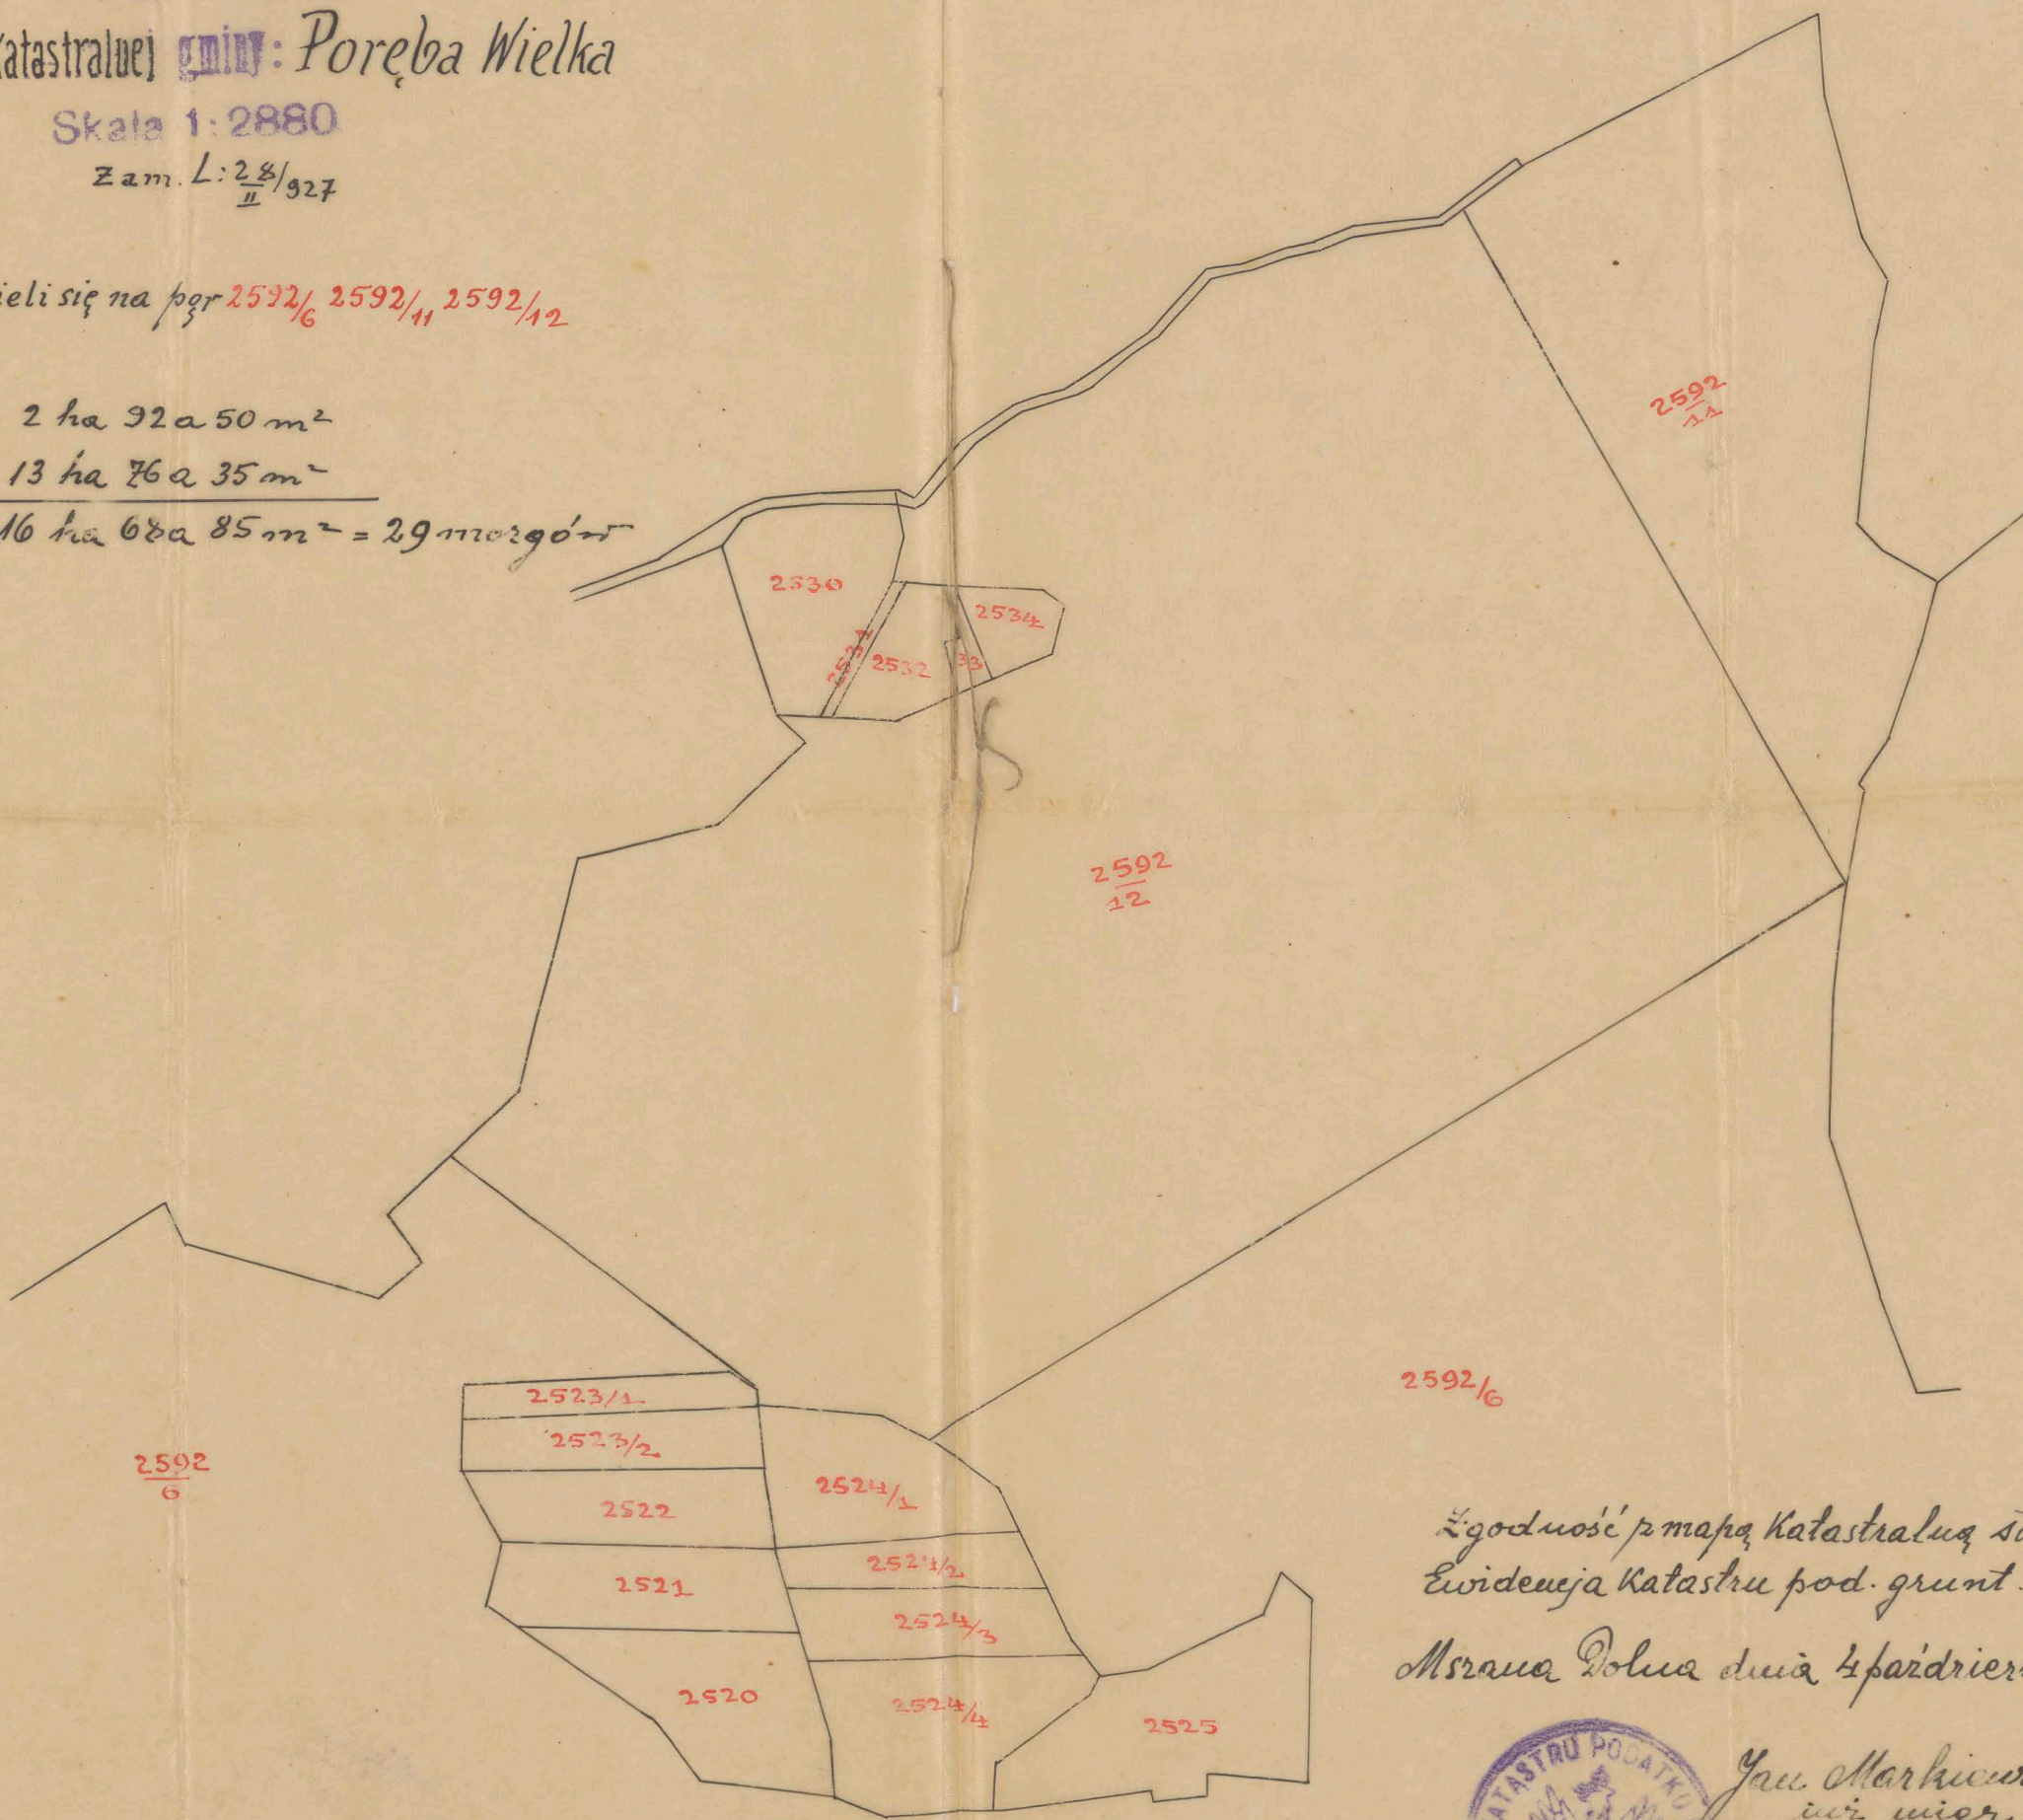 Katastralnej gminy: Poręba Wielka
Skala 1:2880
Zam. L: 28/II/927
ieli się na pgr 2592/6 2592/11 2592/12
2 ha 92 a 50 m²
13 ha 76 a 35 m²
16 ha 68 a 85 m² = 29 morgów
2592/11
2530
2534
2531
2532
33
2592/12
2523/1
2592/6
2523/2
2592/6
2524/1
2522
2524/2
2521
2524/3
2520
2524/4
2525
Zgodność z mapą Katastralną
Ewidencja Katastru pod. grunt.
Mszana Dolna dnia 4 paździer
KATASTRU PODATKU
Jan Markiew
inż. mier